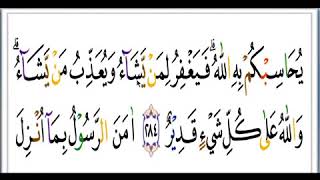 يُحَاسِبْكُمْ بِهِ اللّٰهُ ؕ فَيَغْفِرُ لِمَنْ يَّشَآءُ وَيُعَذِّبُ مَنْ يَّشَآءُ ؕ
وَاللّٰهُ عَلٰى كُلِّ شَيْءٍ قَدِيْرٌ ﴿۲۸۴﴾ اٰمَنَ الرَّسُوْلُ بِمَاۤ اُنْزِلَ